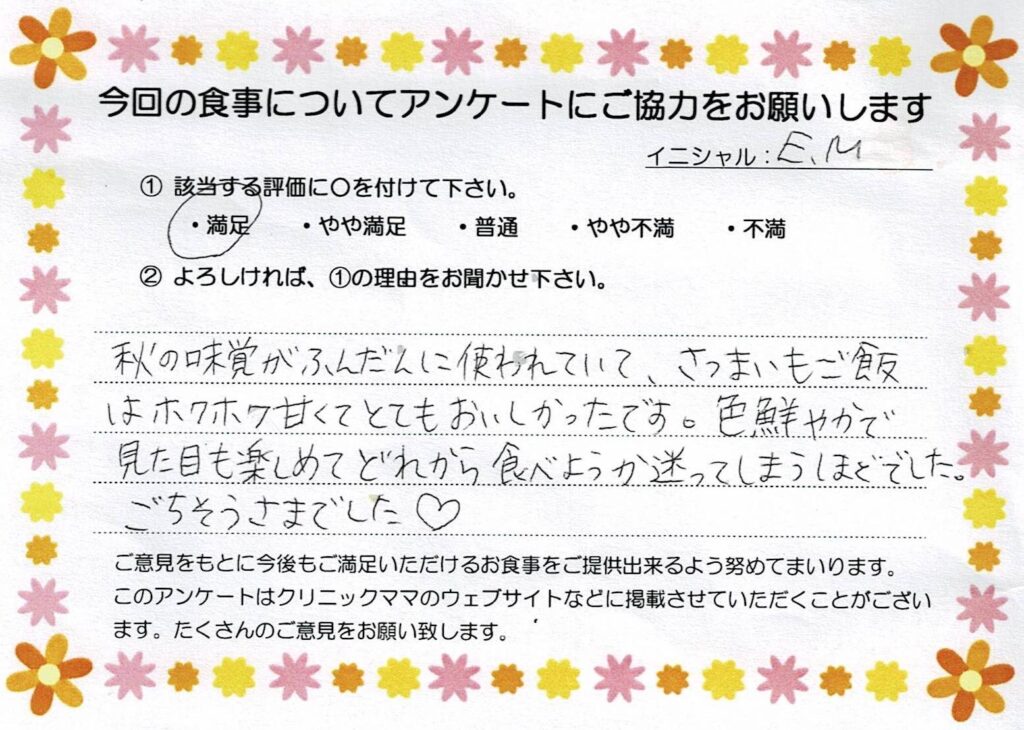 今回の食事についてアンケートにご協力をお願いします
イニシャル：E.M
① 該当する評価に〇を付けて下さい。
・満足 ・やや満足 ・普通 ・やや不満 ・不満
② よろしければ、①の理由をお聞かせ下さい。
秋の味覚がふんだんに使われていて、さつまいもご飯
はホクホク甘くてとてもおいしかったです。色鮮やかで
見た目も楽しめてどれから食べようか迷ってしまうほどでした。
ごちそうさまでした♡
ご意見をもとに今後もご満足いただけるお食事をご提供出来るよう努めてまいります。
このアンケートはクリニックママのウェブサイトなどに掲載させていただくことがござい
ます。たくさんのご意見をお願い致します。